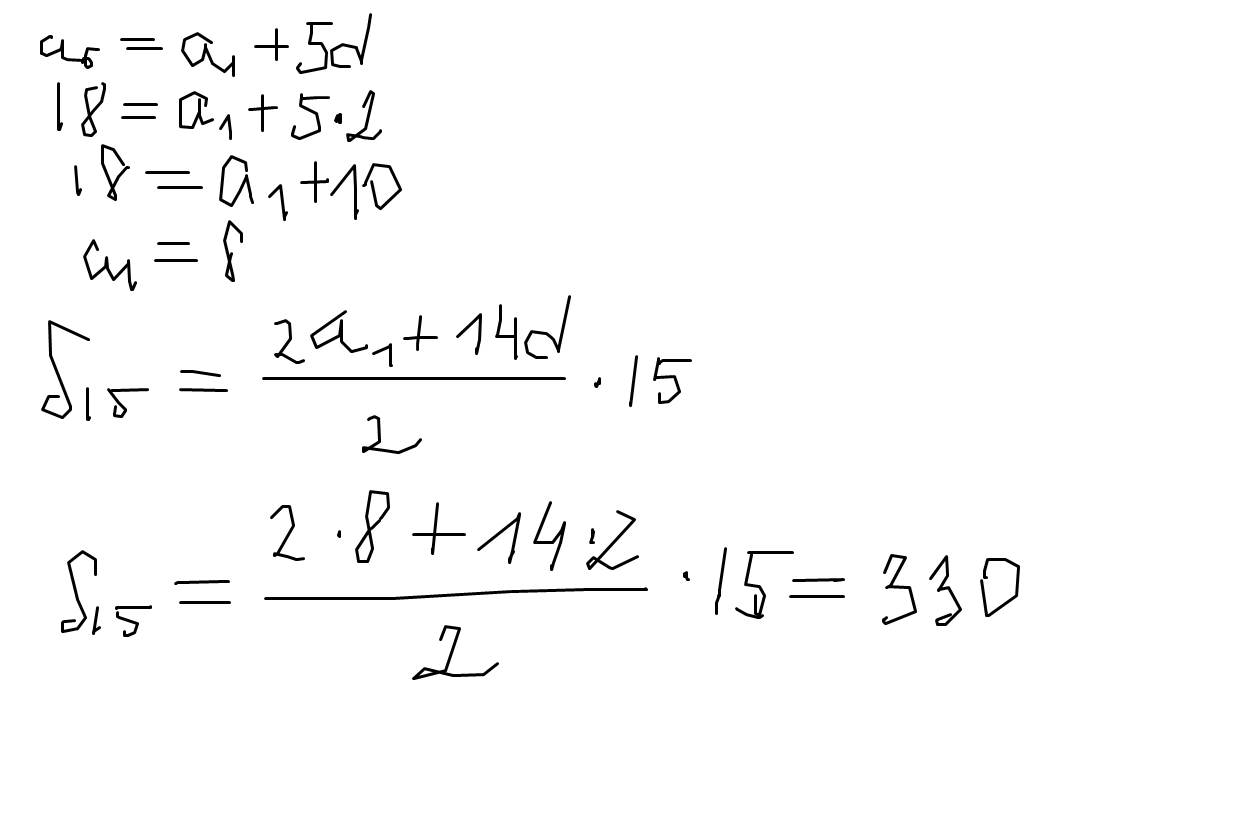 a₅ = a₁ + 5d
18 = a₁ + 5·2
18 = a₁ + 10
a₁ = 8
S₁₅ = (2a₁ + 14d)/2 · 15
S₁₅ = (2·8 + 14·2)/2 · 15 = 330